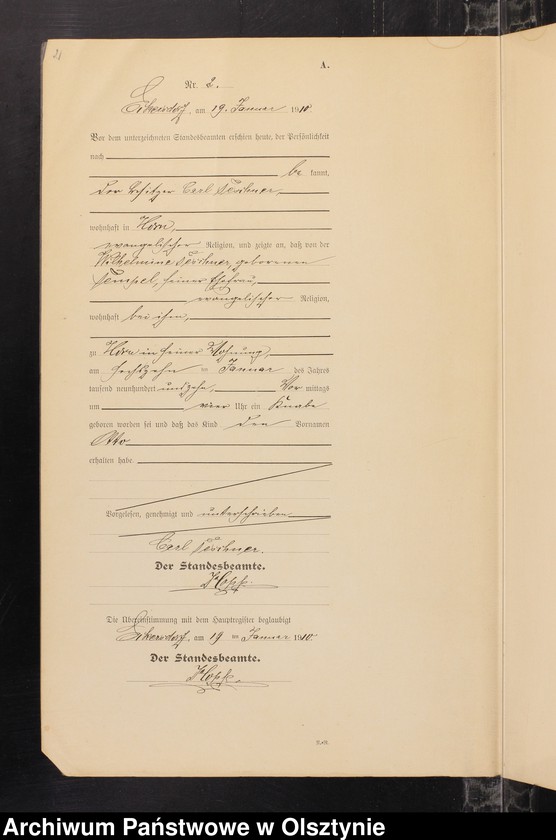 21
A.
Nr. 2.
Eckersdorf, am 19. Januar 1910
Vor dem unterzeichneten Standesbeamten erschien heute, der Persönlichkeit
nach
be kannt,
der Besitzer Carl
wohnhaft in Horn,
evangelischer Religion, und zeigte an, daß von der
Wilhelmine geborenen
Tempel, seiner Ehefrau,
evangelischer Religion,
wohnhaft bei ihm,
zu Horn in seiner Wohnung,
am sechszehn = Januar des Jahres
tausend neunhundert und zehn, Vor mittags
um vier Uhr ein Knabe
geboren worden sei und daß das Kind den Vornamen
Otto
erhalten habe.
Vorgelesen, genehmigt und unterschrieben
Carl
Der Standesbeamte.
Die Übereinstimmung mit dem Hauptregister beglaubigt
Eckersdorf, am 19 = Januar 1910
Der Standesbeamte.
Archiwum Państwowe w Olsztynie